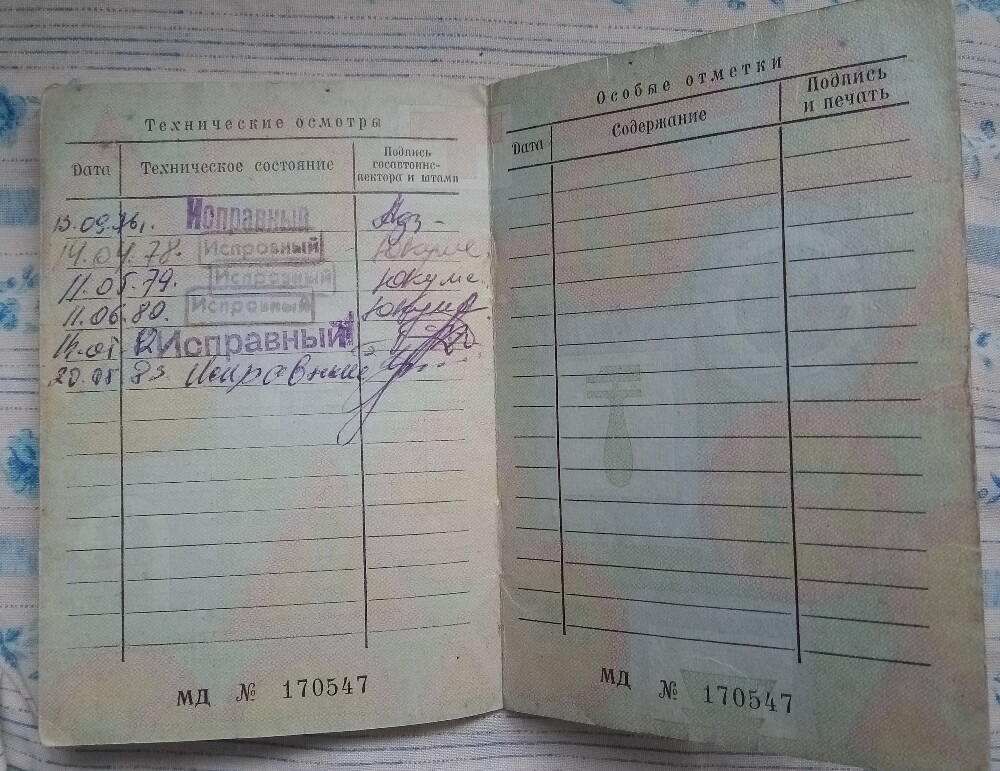 Технические осмотры
Дата Техническое состояние Подпись госавтоинс-
пектора и штамп
13.09.76г. Исправный
14.04.78. Исправный
11.05.79. Исправный
11.06.80. Исправный
Исправный
83. Исправный
МД № 170547
Особые отметки
Дата Содержание Подпись
и печать
МД № 170547